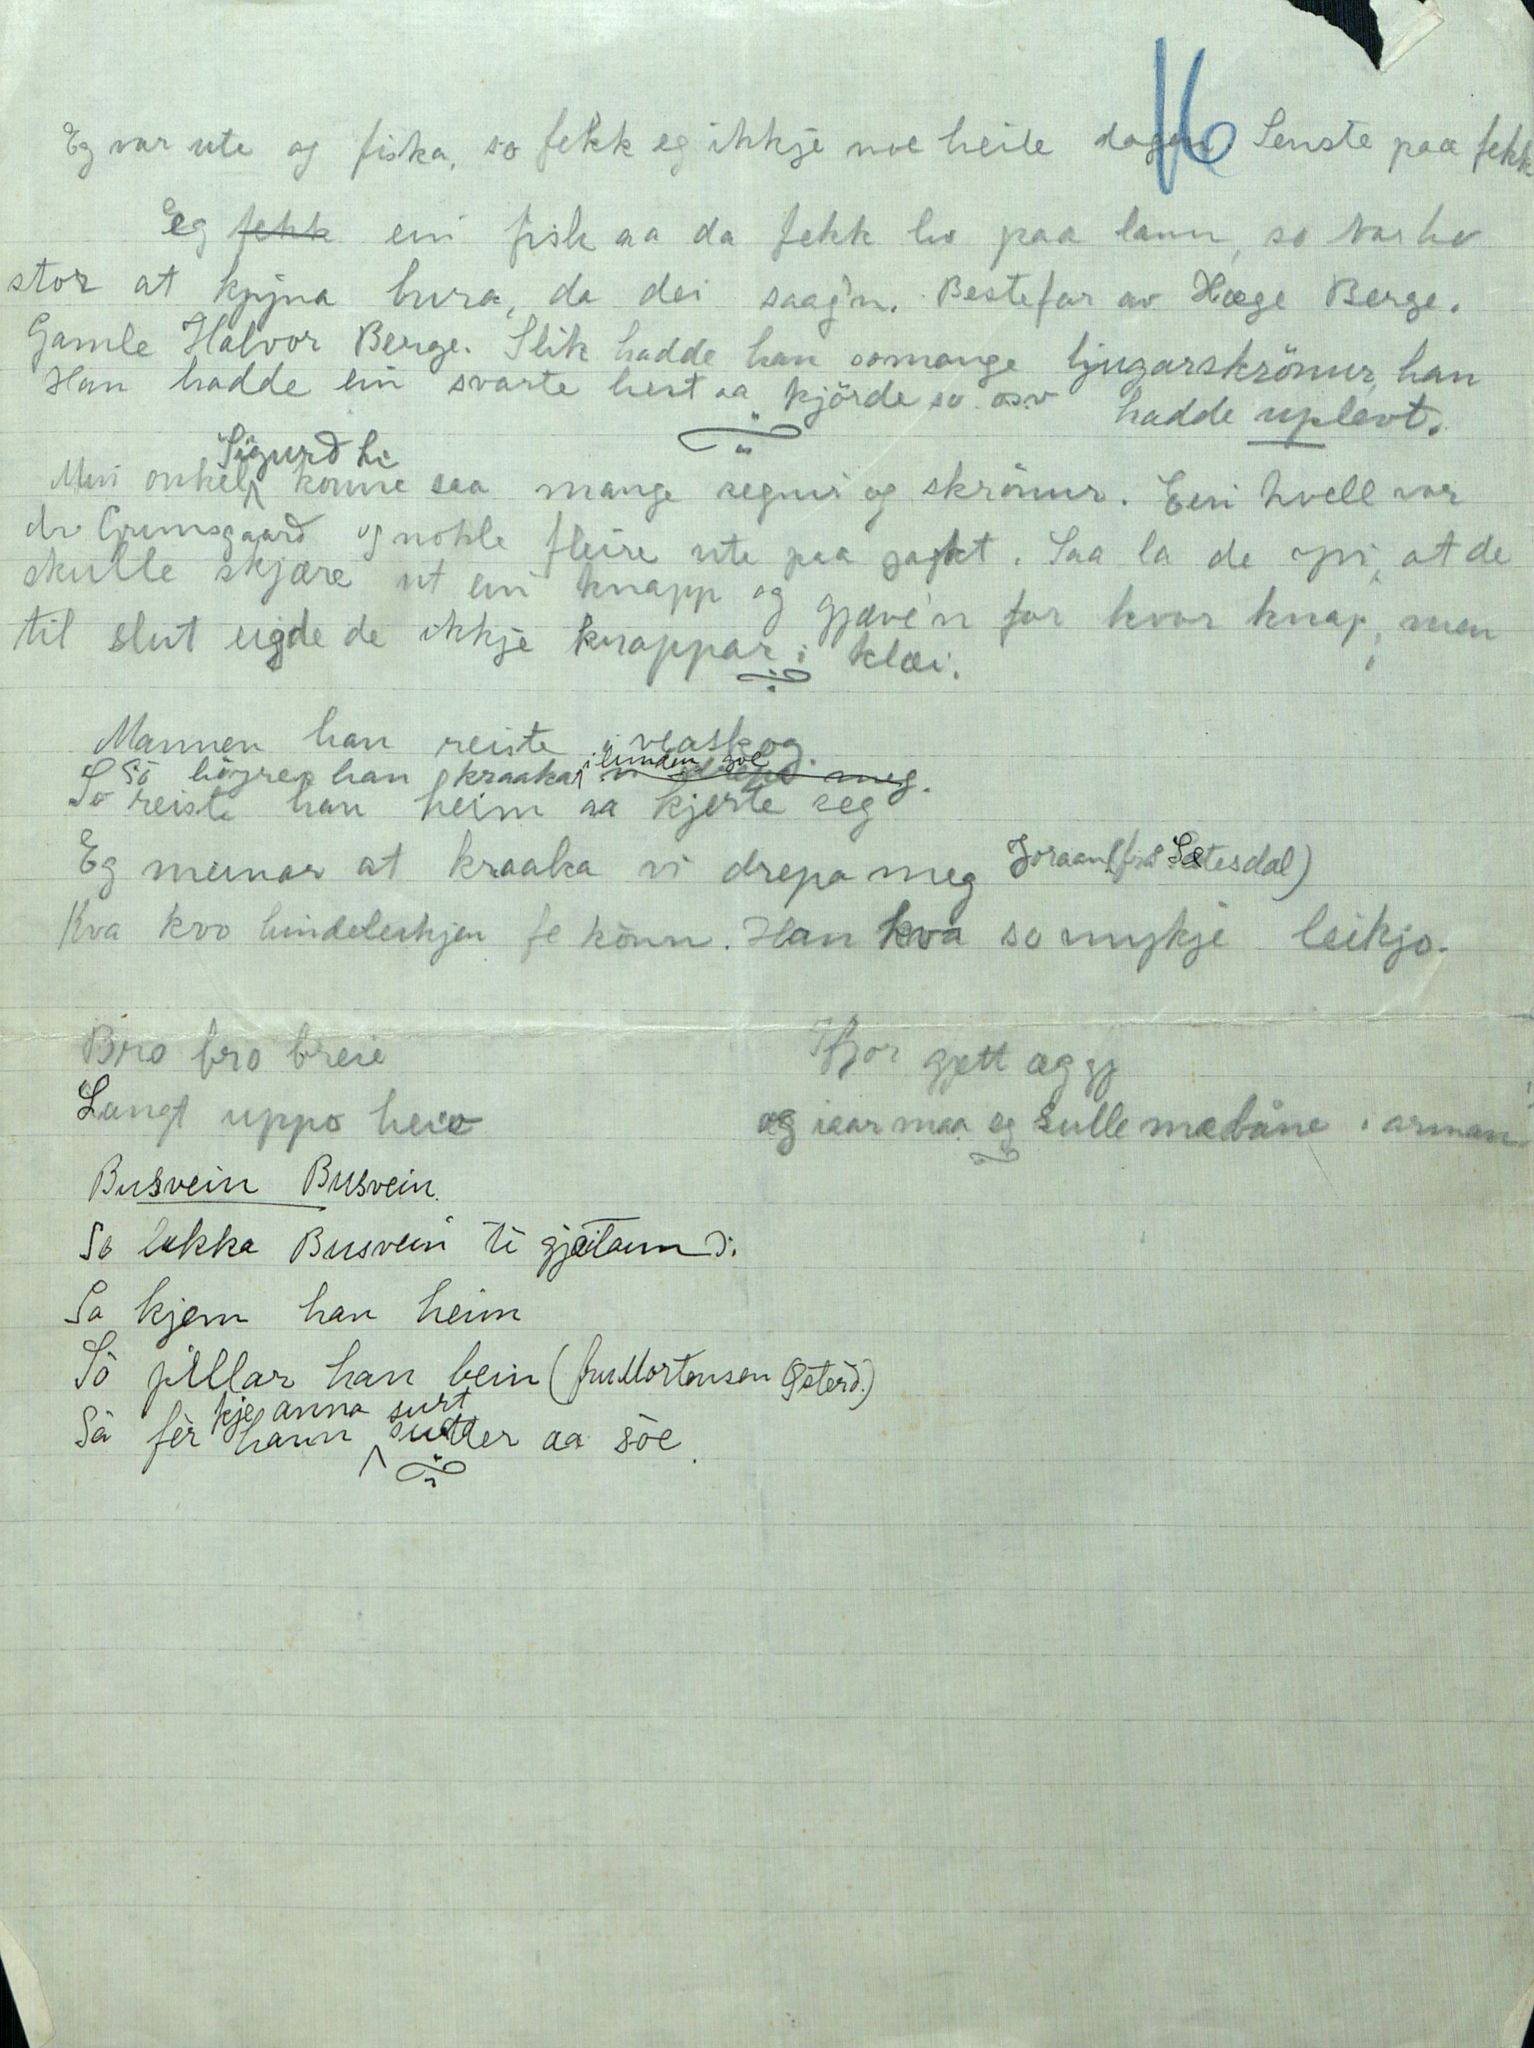 16
Eg var ute og fiska, so fekk eg ikkje noe heile dagen Senste paa fekk
Eg fekk ein fisk aa da fekk ho paa lann, so var ho
stor at kjyna bura, da dei saag'n. Bestefar av Hæge Berge.
Gamle Halvor Berge. Slik hadde han somange ljugarskrönur, han
hadde uplevt.
Han hadde ein svarte hest aa kjörde so osv
Sigurd Li
Min onkel konne saa mange segnir og skrönur. Ein kvell var
dr Grimsgaard og nokle fleire ute paa jagt. Saa la de ivi, at de
skulle skjære ut ein knapp og gjæve'n for kvor knap, men
til slut eigde de ikkje knappar i klæi.
Mannen han reiste i veaskog.
So högrer han kraaka i lunden goe vi drepa meg.
So reiste han heim aa kjerte seg
Eg meinar at kraaka vi drepa meg Joraan (frå Sætesdal)
Kva kvo hindeleikjen fe könn. Han kva so mykje leikje.
Bro bro breie
Langt uppo heie
Ifjor gjett eg gj
og iaar maa eg sulle mæ båne i armane
Busvein Busvein.
So lokka Busvein ti gjæitann si.
So kjem han heim
So pillar han bein (fru Mortensen Österd.)
kje anna surt
Så fèr hann sutter aa söe.